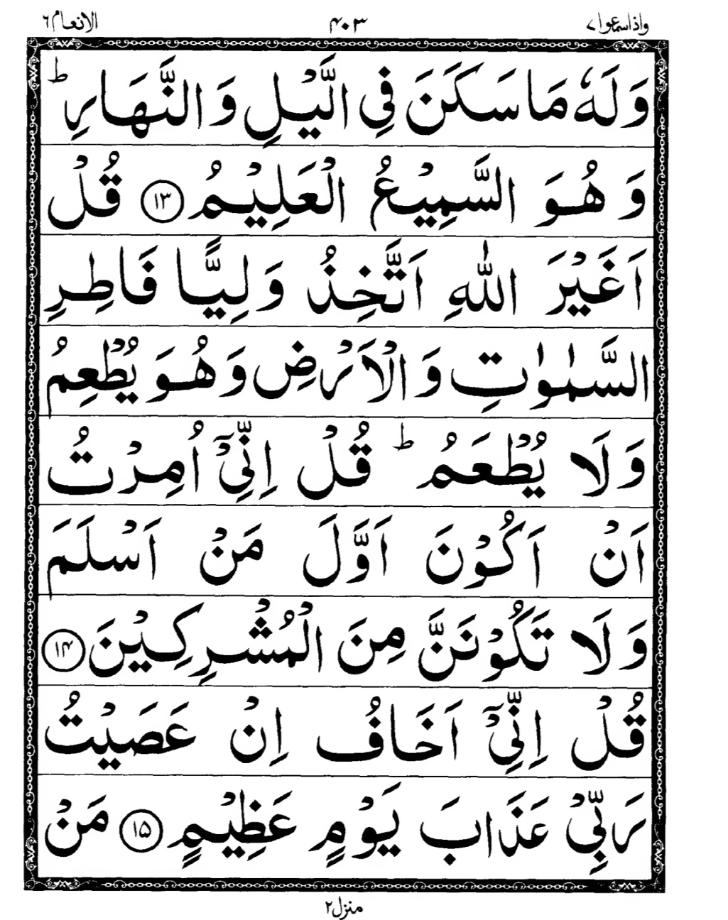 واذاسمعوا ٧ ۴۰۳ الانعام ٦
وَلَهٗ مَا سَكَنَ فِي الَّيْلِ وَالنَّهَارِ ؕ
وَ هُوَ السَّمِيْعُ الْعَلِيْمُ ۱۳ قُلْ
اَغَيْرَ اللّٰهِ اَتَّخِذُ وَلِيًّا فَاطِرِ
السَّمٰوٰتِ وَ الْاَرْضِ وَ هُوَ يُطْعِمُ
وَلَا يُطْعَمُ ؕ قُلْ اِنِّيْٓ اُمِرْتُ
اَنْ اَكُوْنَ اَوَّلَ مَنْ اَسْلَمَ
وَلَا تَكُوْنَنَّ مِنَ الْمُشْرِكِيْنَ ۱۴
قُلْ اِنِّيْٓ اَخَافُ اِنْ عَصَيْتُ
رَبِّيْ عَذَابَ يَوْمٍ عَظِيْمٍ ۱۵ مَنْ
منزل ٢